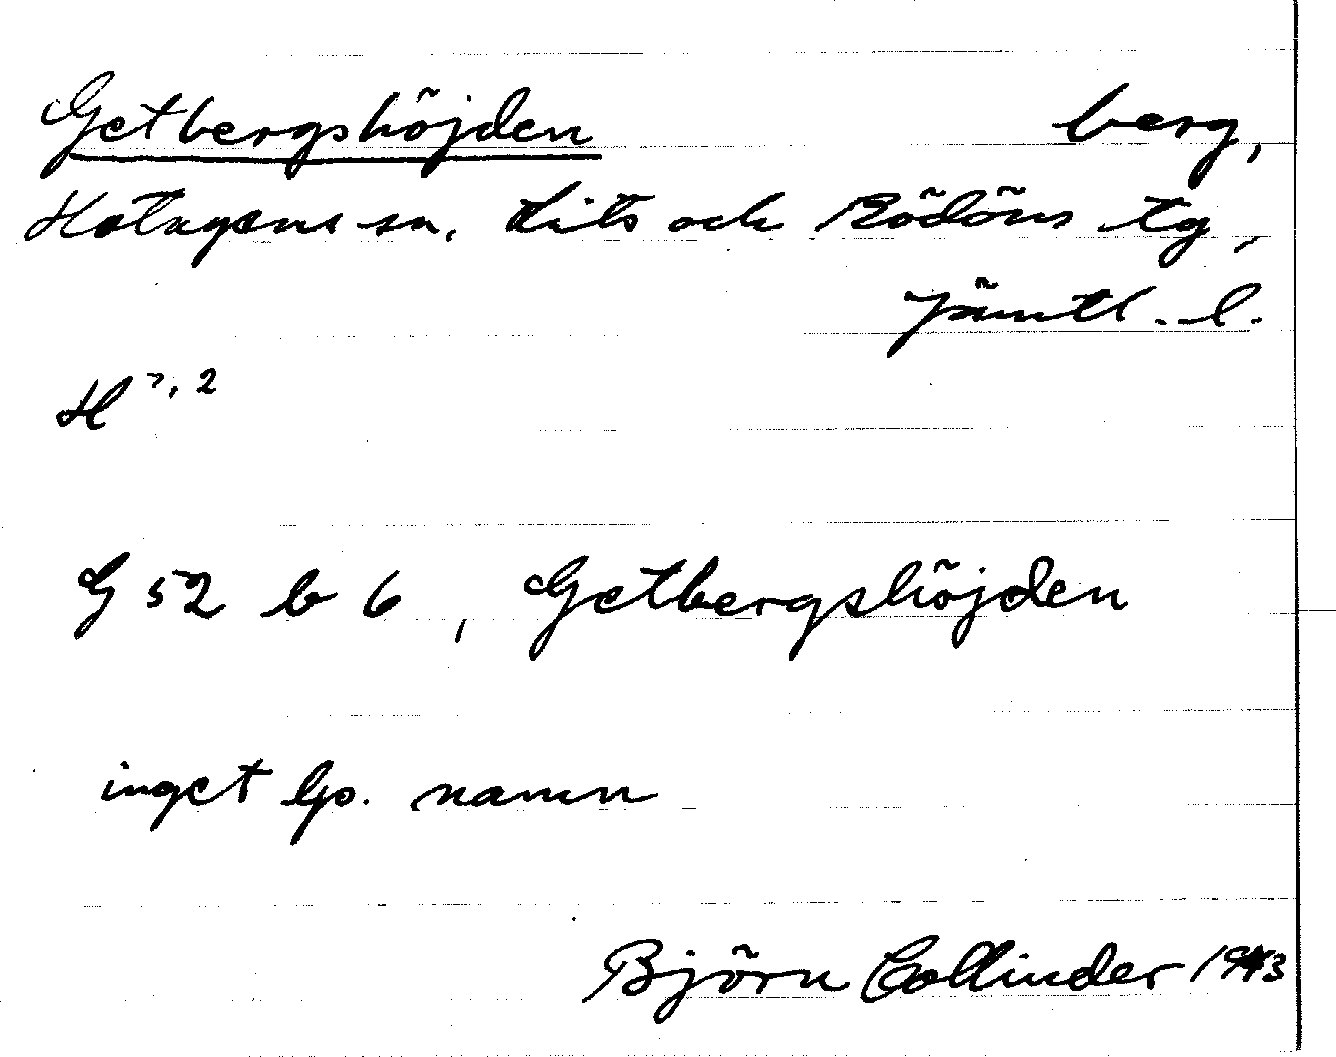 Getbergshöjden berg,
Hotagens sn. Lits och Rödöns tg,
Jämtl. l.
H ?, 2
G 52 b 6, Getbergshöjden
inget lp. namn
Björn Collinder 1943